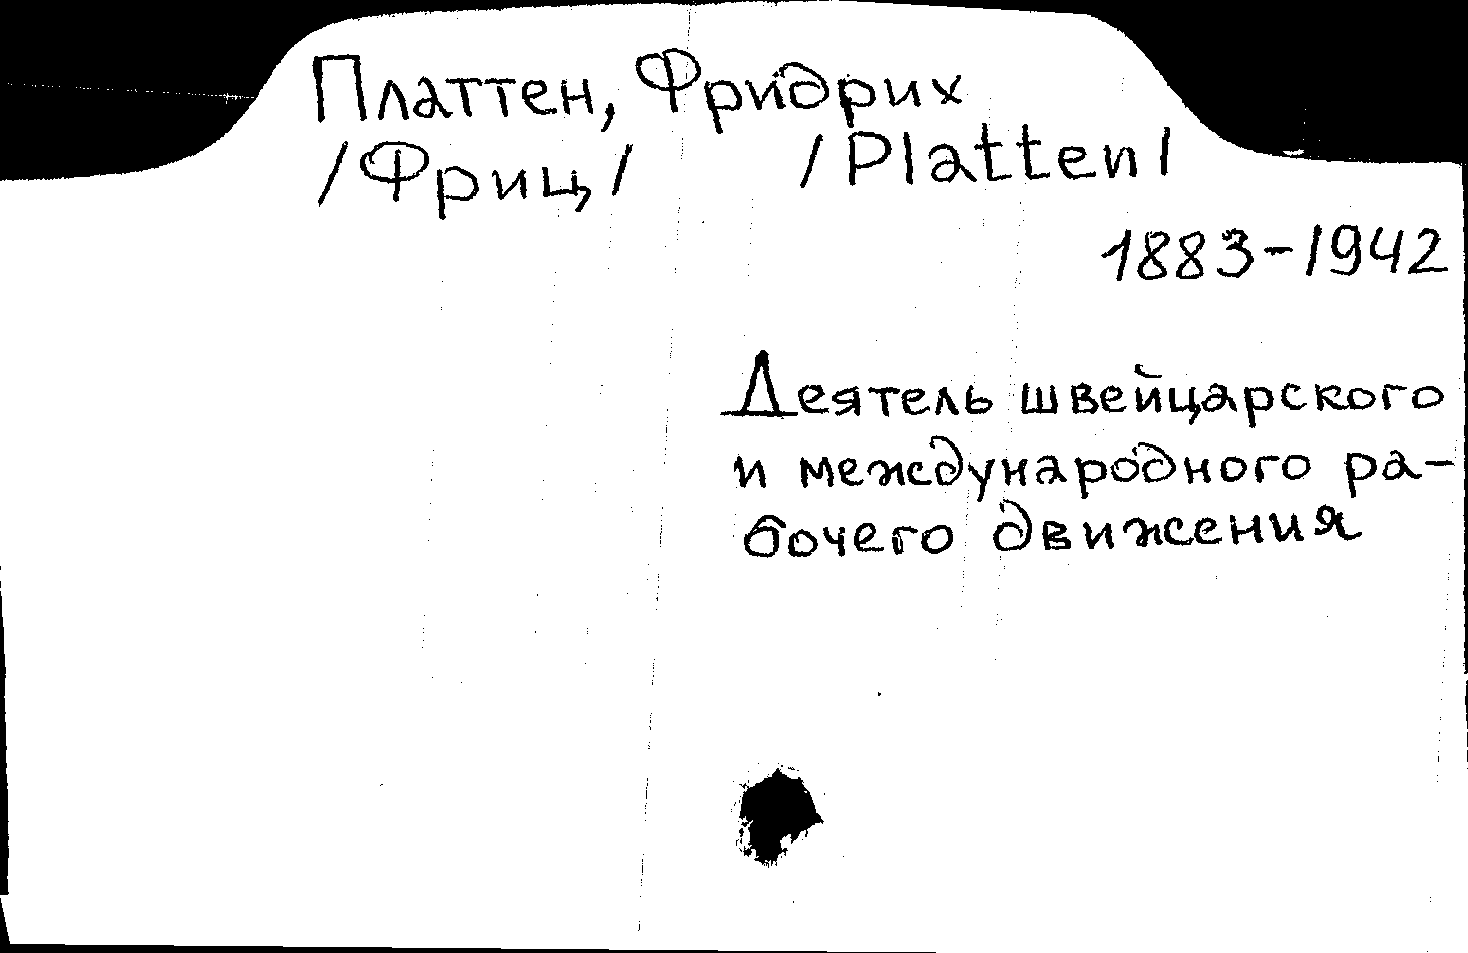 Платтен, Фридрих
/Фриц/ /Platten/
1883-1942
Деятель швейцарского
и международного ра-
бочего движения